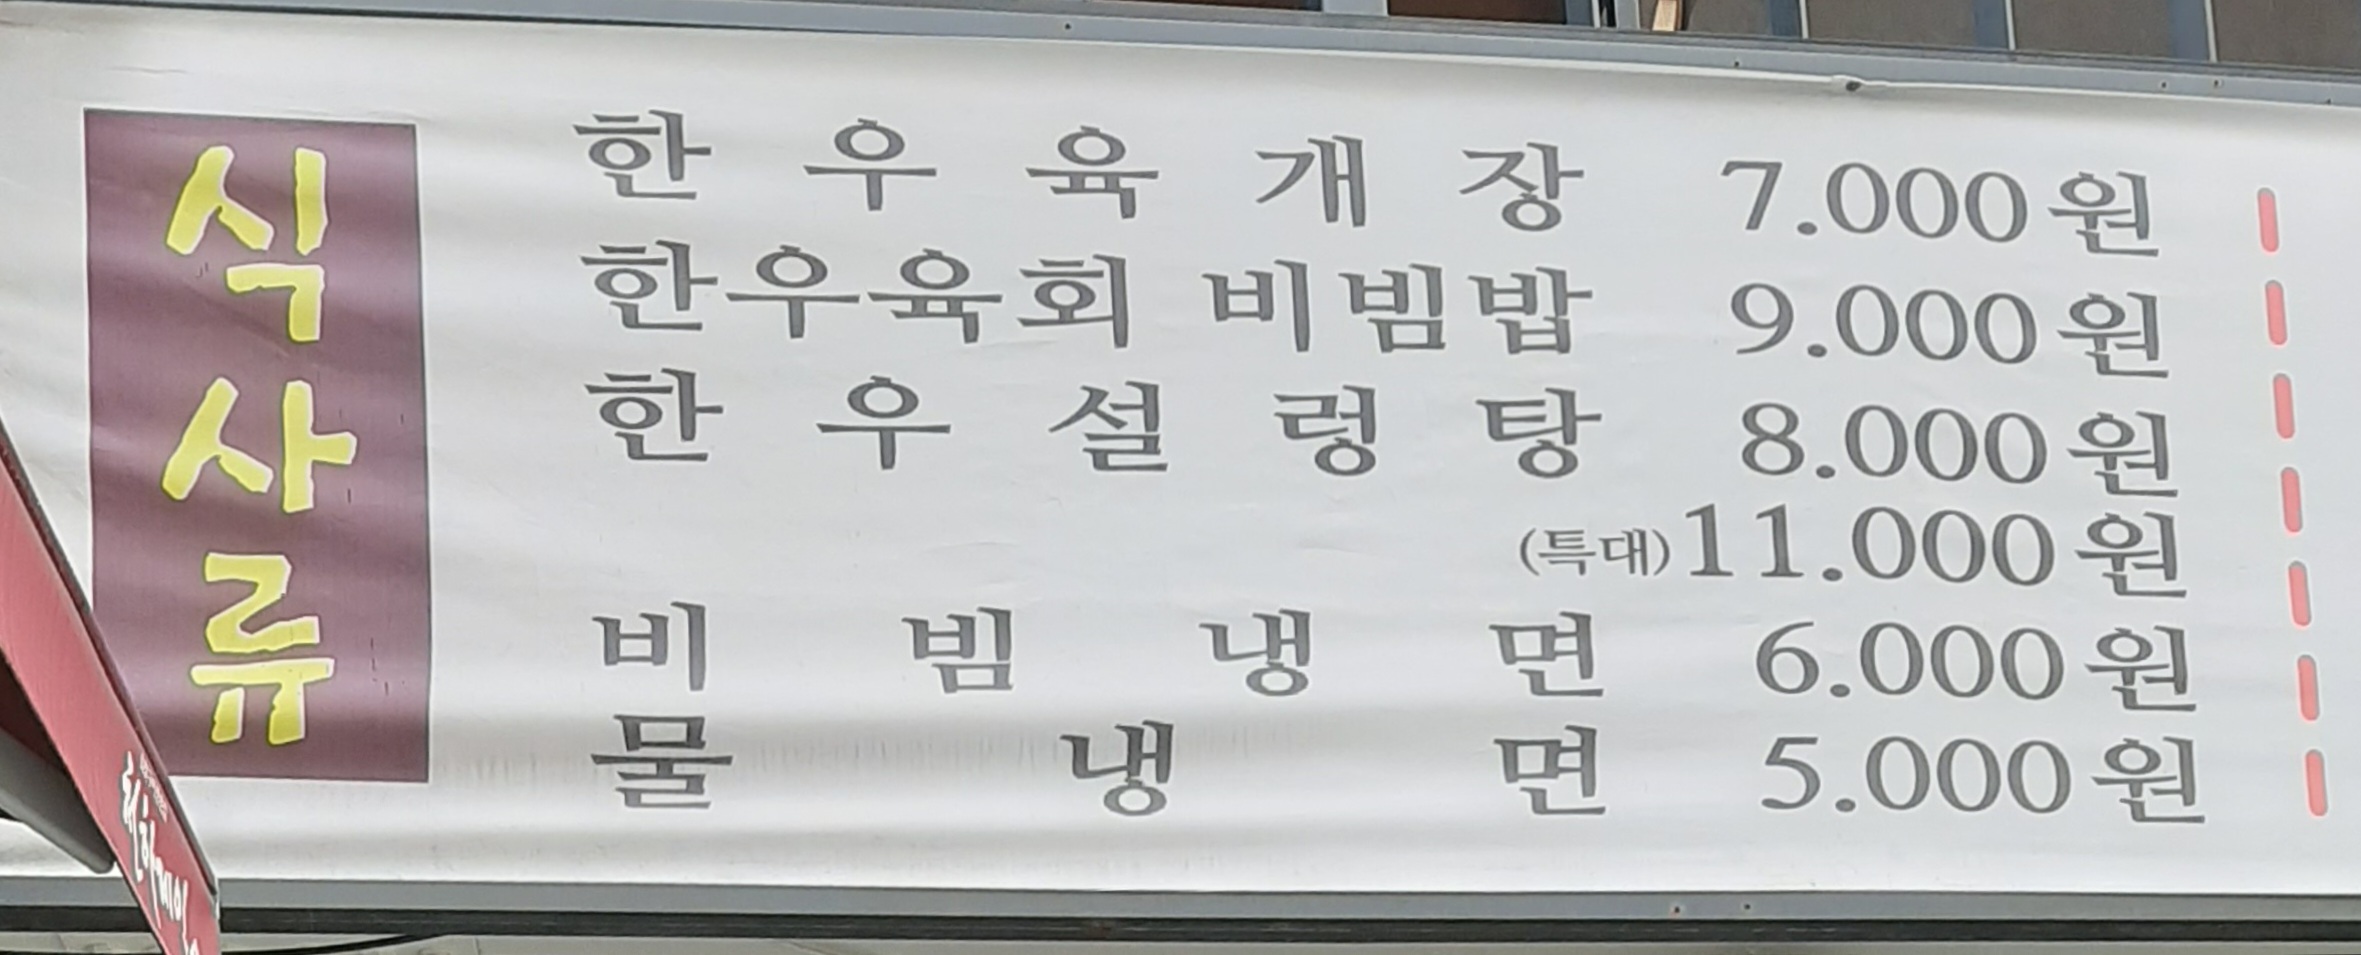 식사류
한우육개장 7.000원
한우육회 비빔밥 9.000원
한우설렁탕 8.000원
(특대) 11.000원
비빔냉면 6.000원
물냉면 5.000원